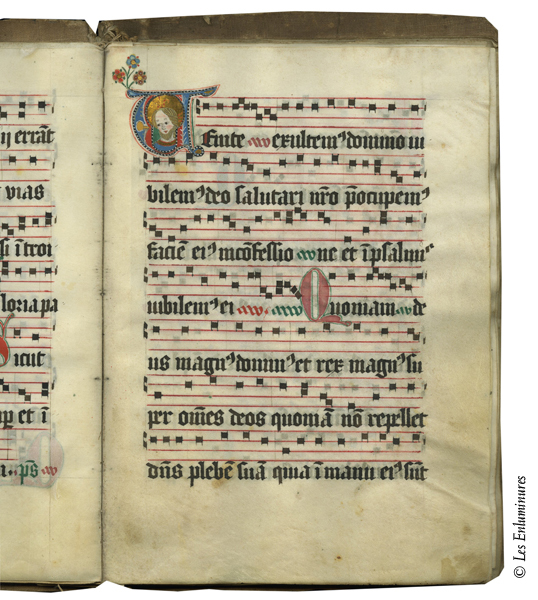 ij errāt
vias
si ītroi
loria pa
icut
et ī
p̄s
Venite exultemꝰ domino iu
bilemꝰ deo salutari nr̄o p̄ocupemꝰ
faciē eiꝰ ī confessio ne et ī psalmiˢ
iubilemꝰ ei Quoniam de
us magnꝰ dominꝰ et rex magnꝰ su
per om̄es deos quoniā nō repellet
dn̄s plebē suā quia ī manu eiꝰ sūt
© Les Enluminures